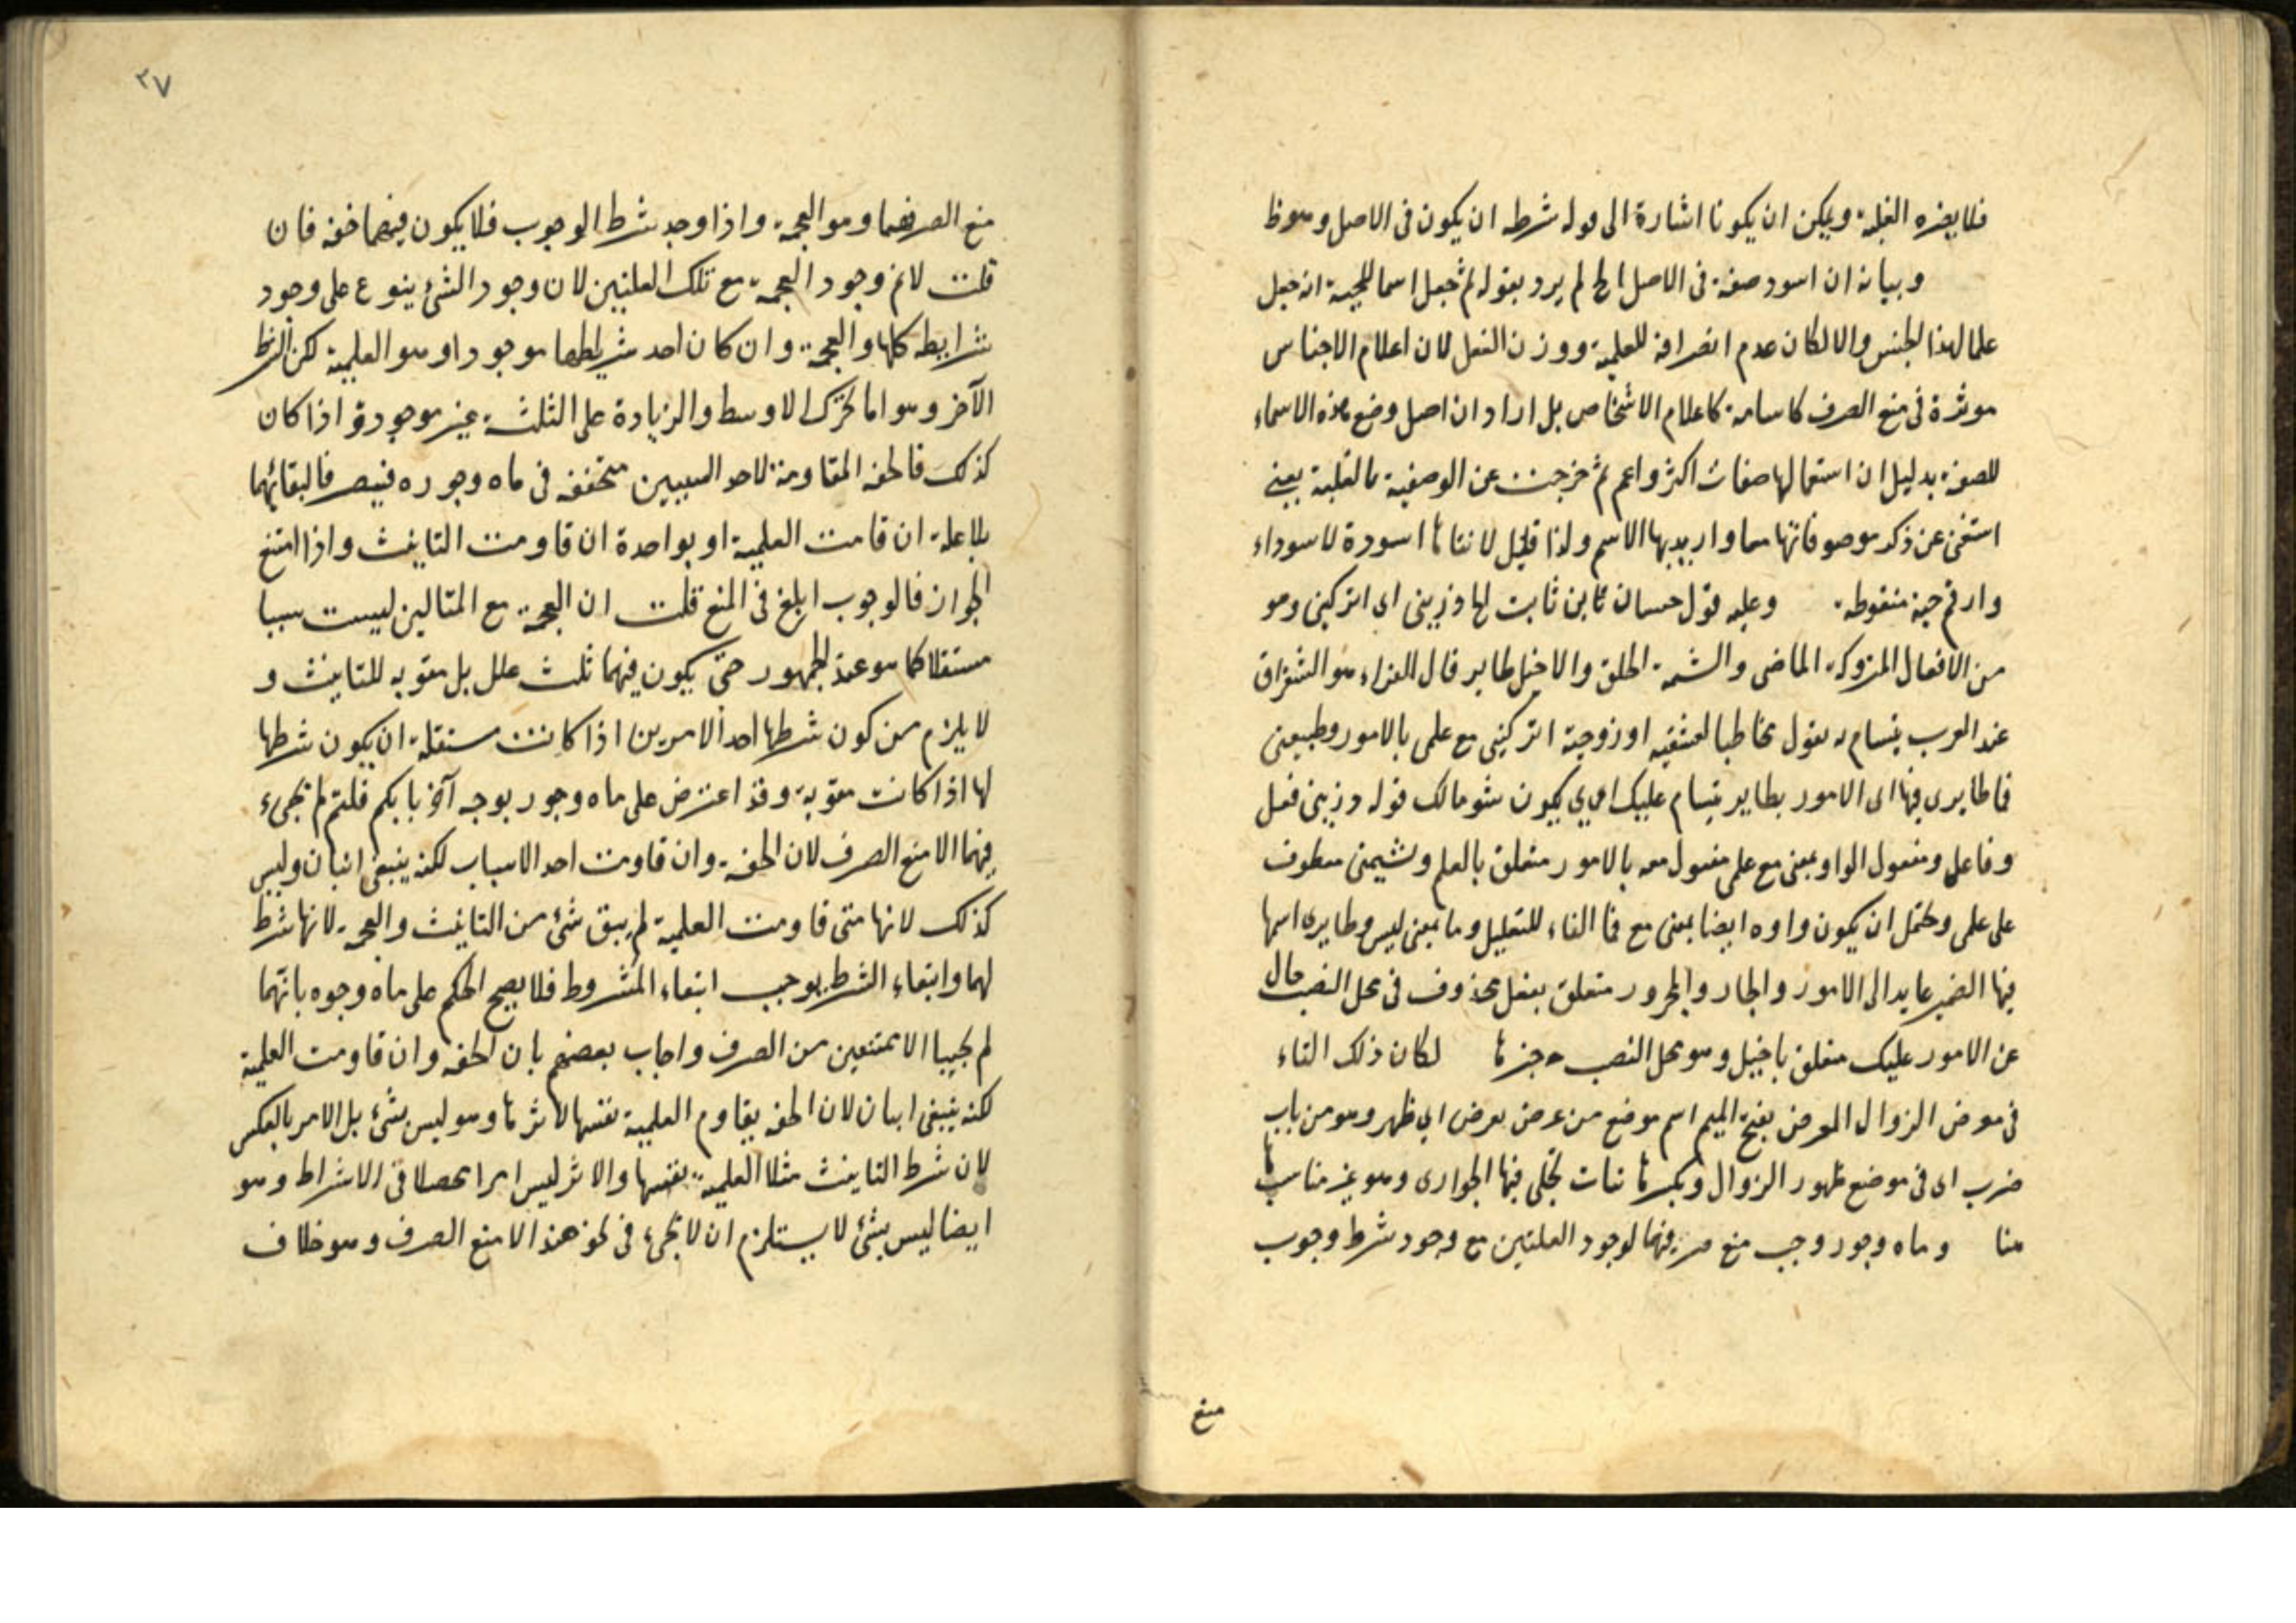 فلا يضره الغلبة ويمكن ان يكونا اشارة الى قوله شرطه ان يكون فى الاصل وهو ظ
وبيانه ان اسود صفة فى الاصل الخ لم يرد بقوله ثم جعل اسما للحية انه جعل
علما لهذا الجنس والا لكان عدم انصرافه للعلمية ووزن الفعل لان اعلام الاجناس
موثرة فى منع الصرف كاسامة كاعلام الاشخاص بل اراد ان اصل وضع هذه الاسماء
للصفة بدليل ان استعمالها صفات اكثر واعم ثم خرجت عن الوصفية بالغلبة يعنى
استغنى عن ذكر موصوفاتها معها واريد بها الاسم ولذا قيل لانثاها اسودة لا سوداء
وارقم حية منقوطة وعليه قول حسان بن ثابت لها ذرينى اى اتركينى وهو
من الافعال المتروكة الماضى والشيمة الخلق والاخيل طاير قال الفراء هو الشقراق
عند العرب يتسام به يقول مخاطبا لعشيقته او زوجته اتركينى مع علمى بالامور وطبيعتى
فما طايرى فيها اى الامور بطاير يتسام عليك اى يكون شوما لك قوله ذرينى فعل
وفاعل ومفعول الواو بمعنى مع علمى مفعول معه بالامور متعلق بالعلم وشيمتى معطوف
على علمى ويحتمل ان يكون واوه ايضا بمعنى مع فما الفاء للتعليل وما بمعنى ليس وطايرى اسمها
فيها الضمير عايد الى الامور والجار والمجرور متعلق بفعل محذوف فى محل النصب حال
عن الامور عليك متعلق باخيل وهو محل النصب خبرها لكان ذلك التاء
فى معرض الزوال المعرض بفتح الميم اسم موضع من عرض يعرض اى ظهر وهو من باب
ضرب اى فى موضع ظهور الزوال وبكسرها تجلى فيها الجوارى وهو غير مناسب
هنا وماه وجور وجب منع صرفهما لوجود العلتين مع وجود شرط وجوب
منع
٢٧
منع الصرفهما وهو العجمة واذا وجد شرط الوجوب فلا يكون فيهما خفة فان
قلت لانم وجود العجمة مع تلك العلتين لان وجود الشئ ينوع على وجود
شرايطه كلها والعجمة وان كان احد شرايطها موجودا وهو العلمية لكن الشرط
الآخر وهو اما تحرك الاوسط والزيادة على الثلثة غير موجودة اذا كان
كذلك فالخفة المقاومة لاحد السببين متحققة فى ماه وجور فينصرفا لبقائهما
بلا علة ان قامت العلمية او بواحدة ان قاومت التانيث واذا امتنع
الجواز فالوجوب ابلغ فى المنع قلت ان العجمة مع المثالين ليست سببا
مستقلا كما هو عند الجمهور حتى يكون فيهما ثلث علل بل مقوية للتانيث و
لا يلزم من كون شرطها احد الامرين اذا كانت مستقلة ان يكون شرطها
لها اذا كانت مقوية وقد اعترض على ماه وجور بوجه آخر بانكم قلتم لم يجىء
فيهما الا منع الصرف لان الخفة وان قاومت احد الاسباب لكنه ينبغى اثنان وليس
كذلك لانها متى قاومت العلمية لم يبق شئ من التانيث والعجمة لانها شرط
لهما وانتفاء الشرط يوجب انتفاء المشروط فلا يصح الحكم على ماه وجور بانهما
لم يجيبا الا ممتنعين من الصرف واجاب بعضهم بان الخفة وان قاومت العلمية
لكنه ينبغى اثنان لان الخفة يقاوم العلمية نفسها لا اثرها وهو ليس بشئ بل الامر بالعكس
لان شرط التانيث مثلا العلمية بنفسها والاثر ليس امرا محصلا فى الاشراط وهو
ايضا ليس بشئ لا يستلزم ان لا يجىء فى نحو هند الا منع الصرف وهو خلاف